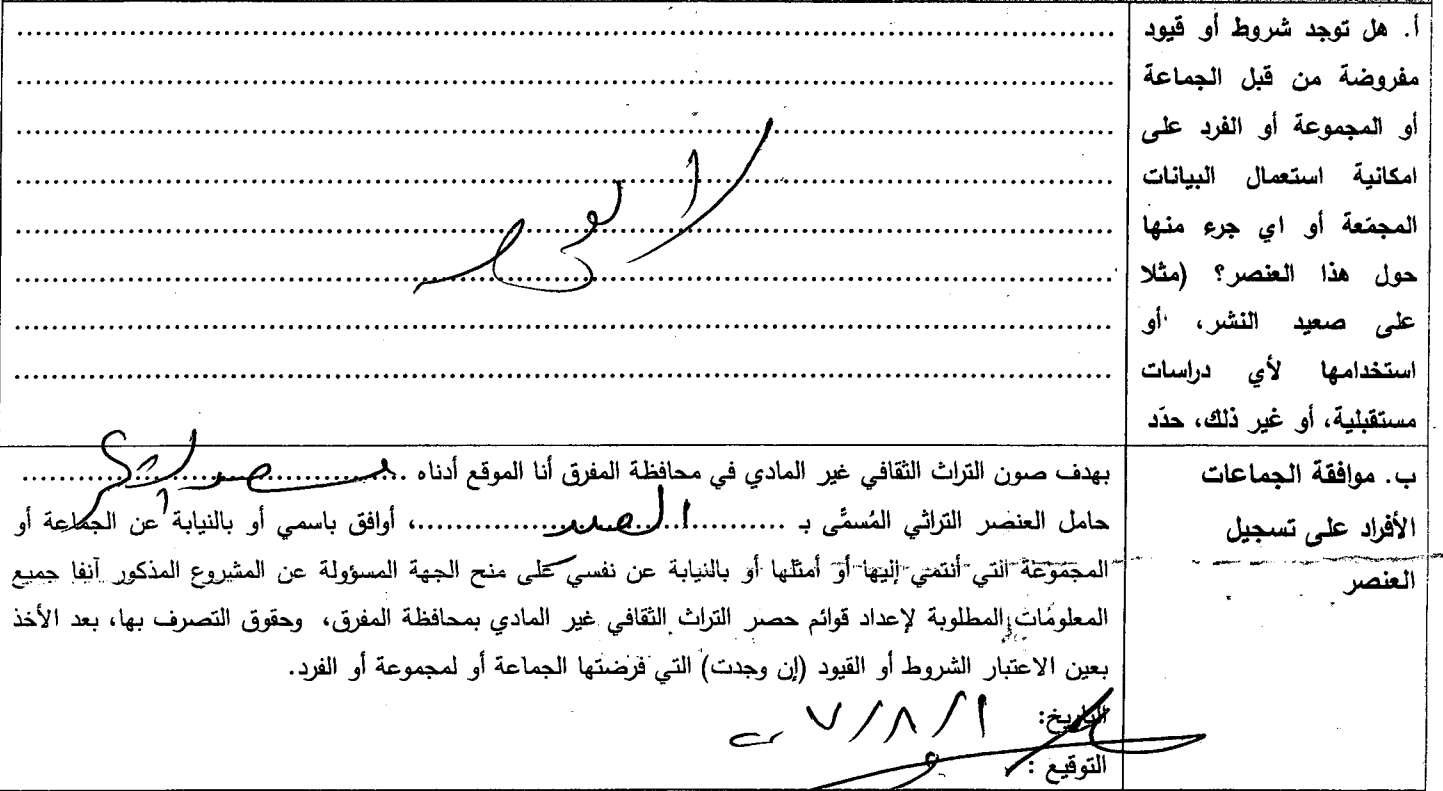 أ. هل توجد شروط أو قيود
مفروضة من قبل الجماعة
أو المجموعة أو الفرد على
امكانية استعمال البيانات
المجمّعة أو اي جرء منها
حول هذا العنصر؟ (مثلا
على صعيد النشر، أو
استخدامها لأي دراسات
مستقبلية، أو غير ذلك، حدّد
لا
ب. موافقة الجماعات
الأفراد على تسجيل
العنصر
بهدف صون التراث الثقافي غير المادي في محافظة المفرق أنا الموقع أدناه
حامل العنصر التراثي المُسمَّى بـ ..... الصيد .....، أوافق باسمي أو بالنيابة عن الجماعة أو
المجموعة التي أنتمي إليها أو أمثلها أو بالنيابة عن نفسي على منح الجهة المسؤولة عن المشروع المذكور آنفا جميع
المعلومات المطلوبة لإعداد قوائم حصر التراث الثقافي غير المادي بمحافظة المفرق، وحقوق التصرف بها، بعد الأخذ
بعين الاعتبار الشروط أو القيود (إن وجدت) التي فرضتها الجماعة أو لمجموعة أو الفرد.
التاريخ: ٧/٨/١
التوقيع :